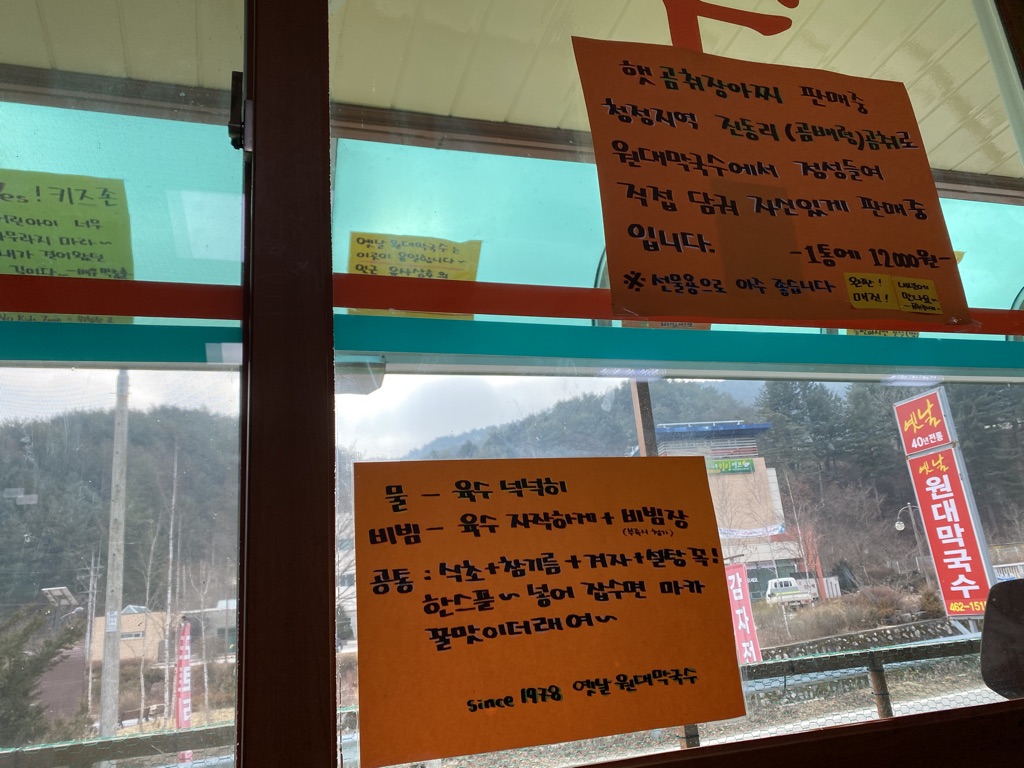 햇곰취장아찌 판매중
청정지역 진동리 (곰배령)곰취로
원대막국수에서 정성들여
직접 담궈 자신있게 판매중
입니다.
-1통에 12,000원-
※ 선물용으로 아주 좋습니다
완판!
매진!
Yes! 키즈존
어린아이 너무
나무라지 마라~
내가 걸어왔던
길이다..
옛날 원대막국수는
물 - 육수 넉넉히
비빔 - 육수 자작하게 + 비빔장
공통 : 식초+참기름+겨자+설탕 꼭!
한스푼~ 넣어 잡수면 마카
꿀맛이더래여~
since 1978 옛날 원대막국수
옛날
40년전통
옛날
원대막국수
감자전